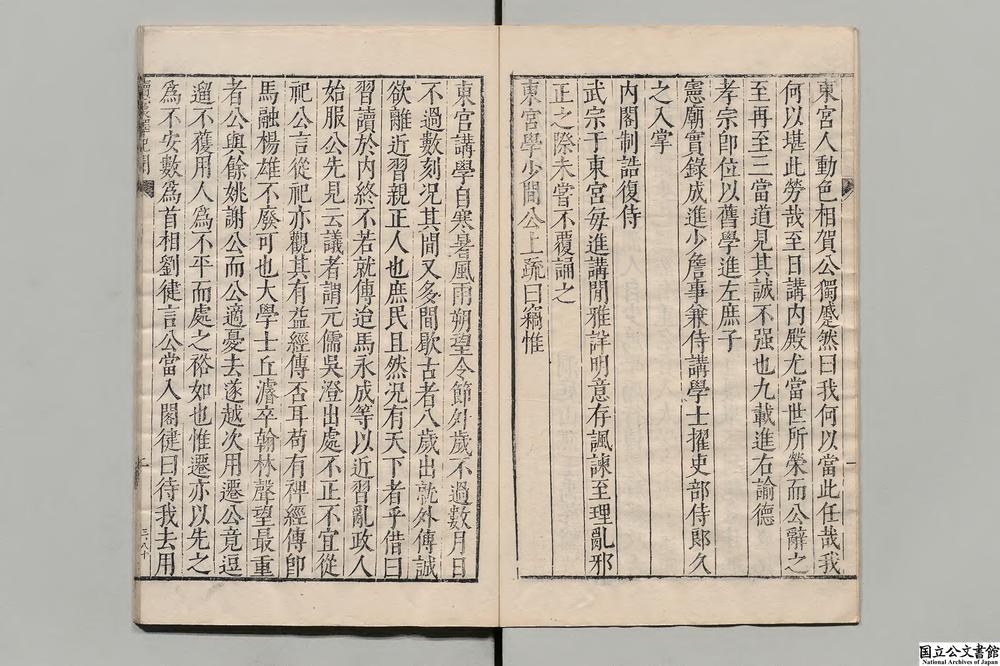 東宮人動色相賀公獨蹙然曰我何以當此任哉我
何以堪此勞哉至日講內殿尤當世所榮而公辭之
至再至三當道見其誠不强也九載進右諭德
孝宗卽位以舊學進左庶子
憲廟實錄成進少詹事兼侍講學士擢吏部侍郎久
之入掌
內閣制誥復侍
武宗于東宮每進講閒雅詳明意存諷諫至理亂邪
正之際未嘗不覆誦之
東宮學少間公上疏曰竊惟
東宮講學自寒暑風雨朔望令節外歲不過數月日
不過數刻况其間又多間歇古者八歲出就外傅誠
欲離近習親正人也庶民且然况有天下者乎借曰
習讀於內終不若就傅迨馬永成等以近習亂政人
始服公先見云議者謂元儒吳澄出處不正不宜從
祀公言從祀亦觀其有益經傳否耳苟有裨經傳卽
馬融楊雄不廢可也大學士丘濬卒翰林聲望最重
者公與餘姚謝公而公適憂去遂越次用遷公竟逗
遛不獲用人爲不平而處之裕如也惟遷亦以先之
爲不安數爲首相劉健言公當入閣健曰待我去用
國立公文書館
National Archives of Japan